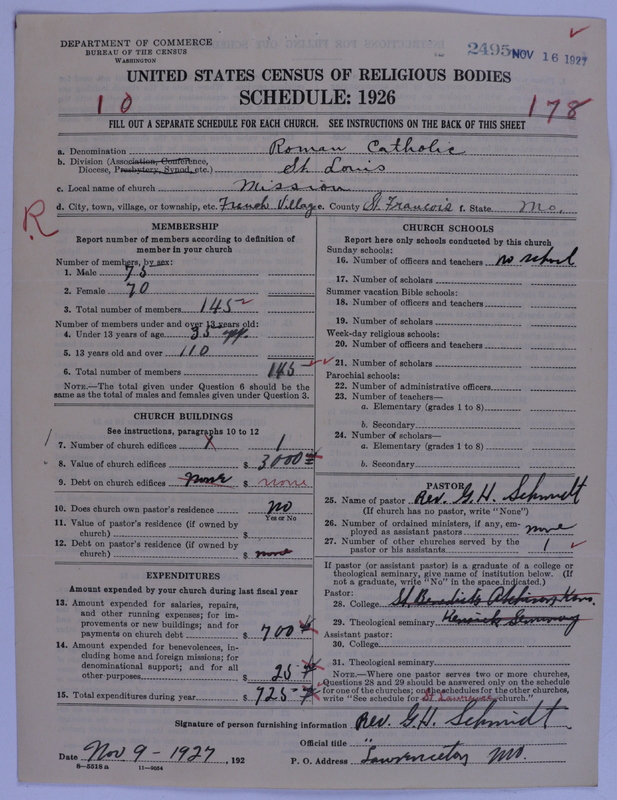 DEPARTMENT OF COMMERCE
BUREAU OF THE CENSUS
WASHINGTON
2495 NOV 16 1927
UNITED STATES CENSUS OF RELIGIOUS BODIES
SCHEDULE: 1926
10
178
FILL OUT A SEPARATE SCHEDULE FOR EACH CHURCH. SEE INSTRUCTIONS ON THE BACK OF THIS SHEET
a. Denomination Roman Catholic
b. Division (Association, Conference,
Diocese, Presbytery, Synod, etc.) St. Louis
c. Local name of church Mission
d. City, town, village, or township, etc. French Village e. County St Francois f. State Mo.
R
MEMBERSHIP
Report number of members according to definition of
member in your church
Number of members, by sex:
1. Male 75
2. Female 70
3. Total number of members 145
Number of members under and over 13 years old:
4. Under 13 years of age 35
5. 13 years old and over 110
6. Total number of members 145
NOTE.—The total given under Question 6 should be the
same as the total of males and females given under Question 3.
CHURCH BUILDINGS
See instructions, paragraphs 10 to 12
7. Number of church edifices 1
8. Value of church edifices $ 3000
9. Debt on church edifices none $ none
10. Does church own pastor's residence no
Yes or No
11. Value of pastor's residence (if owned by
church) $
12. Debt on pastor's residence (if owned by
church) $ none
EXPENDITURES
Amount expended by your church during last fiscal year
13. Amount expended for salaries, repairs,
and other running expenses; for im-
provements or new buildings; and for
payments on church debt $ 700
14. Amount expended for benevolences, in-
cluding home and foreign missions; for
denominational support; and for all
other purposes $ 25
15. Total expenditures during year $ 725
CHURCH SCHOOLS
Report here only schools conducted by this church
Sunday schools:
16. Number of officers and teachers no school
17. Number of scholars
Summer vacation Bible schools:
18. Number of officers and teachers
19. Number of scholars
Week-day religious schools:
20. Number of officers and teachers
21. Number of scholars
Parochial schools:
22. Number of administrative officers
23. Number of teachers—
a. Elementary (grades 1 to 8)
b. Secondary
24. Number of scholars—
a. Elementary (grades 1 to 8)
b. Secondary
PASTOR
25. Name of pastor Rev. G. H. Schmidt
(If church has no pastor, write "None")
26. Number of ordained ministers, if any, em-
ployed as assistant pastors none
27. Number of other churches served by the
pastor or his assistants 1
If pastor (or assistant pastor) is a graduate of a college or
theological seminary, give name of institution below. (If
not a graduate, write "No" in the space indicated.)
Pastor:
28. College St. Benedicts Atchison, Kans.
29. Theological seminary Kenrick Seminary
Assistant pastor:
30. College
31. Theological seminary
NOTE.—Where one pastor serves two or more churches,
Questions 28 and 29 should be answered only on the schedule
for one of the churches; on the schedules for the other churches,
write "See schedule for St Lawrence church."
Signature of person furnishing information Rev. G. H. Schmidt
Official title "
Date Nov 9 - 1927, 192
P. O. Address Lawrenceton Mo.
8-5318 a 11-9054